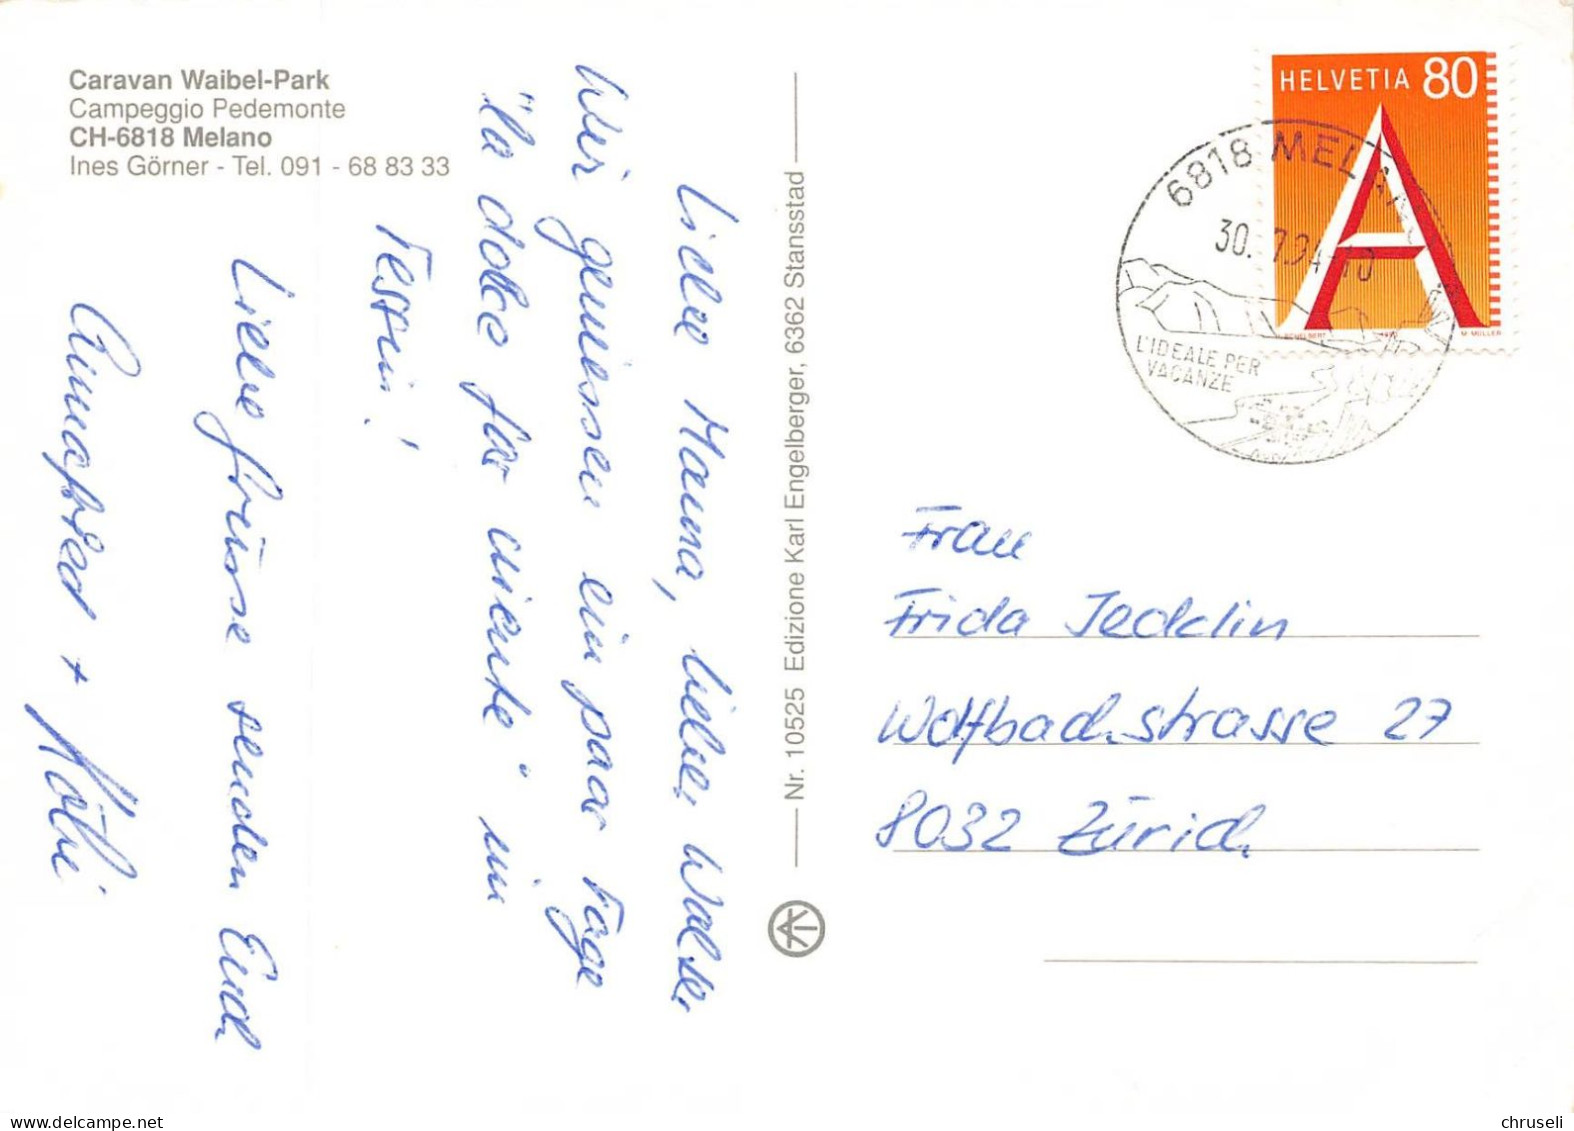 Caravan Waibel-Park
Campeggio Pedemonte
CH-6818 Melano
Ines Görner - Tel. 091 - 68 83 33
Liebe Mama, lieber Walter
Wir geniessen ein paar Tage
"la dolce far niente" im
Tessin!
Liebe Grüsse senden Euch
Annafried + Köbi
Nr. 10525 Edizione Karl Engelberger, 6362 Stansstad
HELVETIA 80
A
M. MÜLLER
6818 MELANO
30.7.94-10
L'IDEALE PER
VACANZE
Frau
Frida Jecklin
Wolfbachstrasse 27
8032 Zürich
chruseli